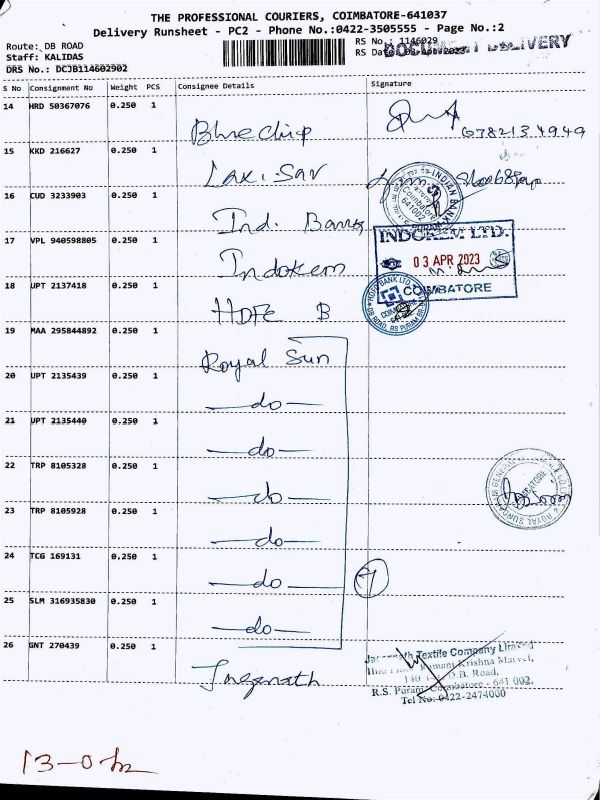 THE PROFESSIONAL COURIERS, COIMBATORE-641037
Delivery Runsheet - PC2 - Phone No.:0422-3505555 - Page No.:2
Route: DB ROAD
RS No.: 1146029
Staff: KALIDAS
RS Date
DOCUMENT DELIVERY
DRS No.: DCJB114602902
S No Consignment No Weight PCS Consignee Details Signature
14 HRD 50367076 0.250 1
Bluechip
15 KKD 216627 0.250 1
Laxi. Sav
16 CUD 3233903 0.250 1
Ind. Bank
INDIAN BANK
Coimbatore
641002
17 VPL 940598805 0.250 1
Indokem
INDOKEM LTD.
03 APR 2023
COIMBATORE
18 UPT 2137418 0.250 1
HDFC B
HDFC BANK LTD
19 MAA 295844892 0.250 1
Royal Sun
20 UPT 2135439 0.250 1
—do—
21 UPT 2135440 0.250 1
—do—
22 TRP 8105328 0.250 1
—do—
23 TRP 8105928 0.250 1
—do—
24 TCG 169131 0.250 1
—do— 7
25 SLM 316935830 0.250 1
—do—
26 GNT 270439 0.250 1
Jagannath
Textile Company Limited
Krishna Marvel,
D.B. Road,
R.S. Puram, Coimbatore - 641 002.
Tel No: 0422-2474000